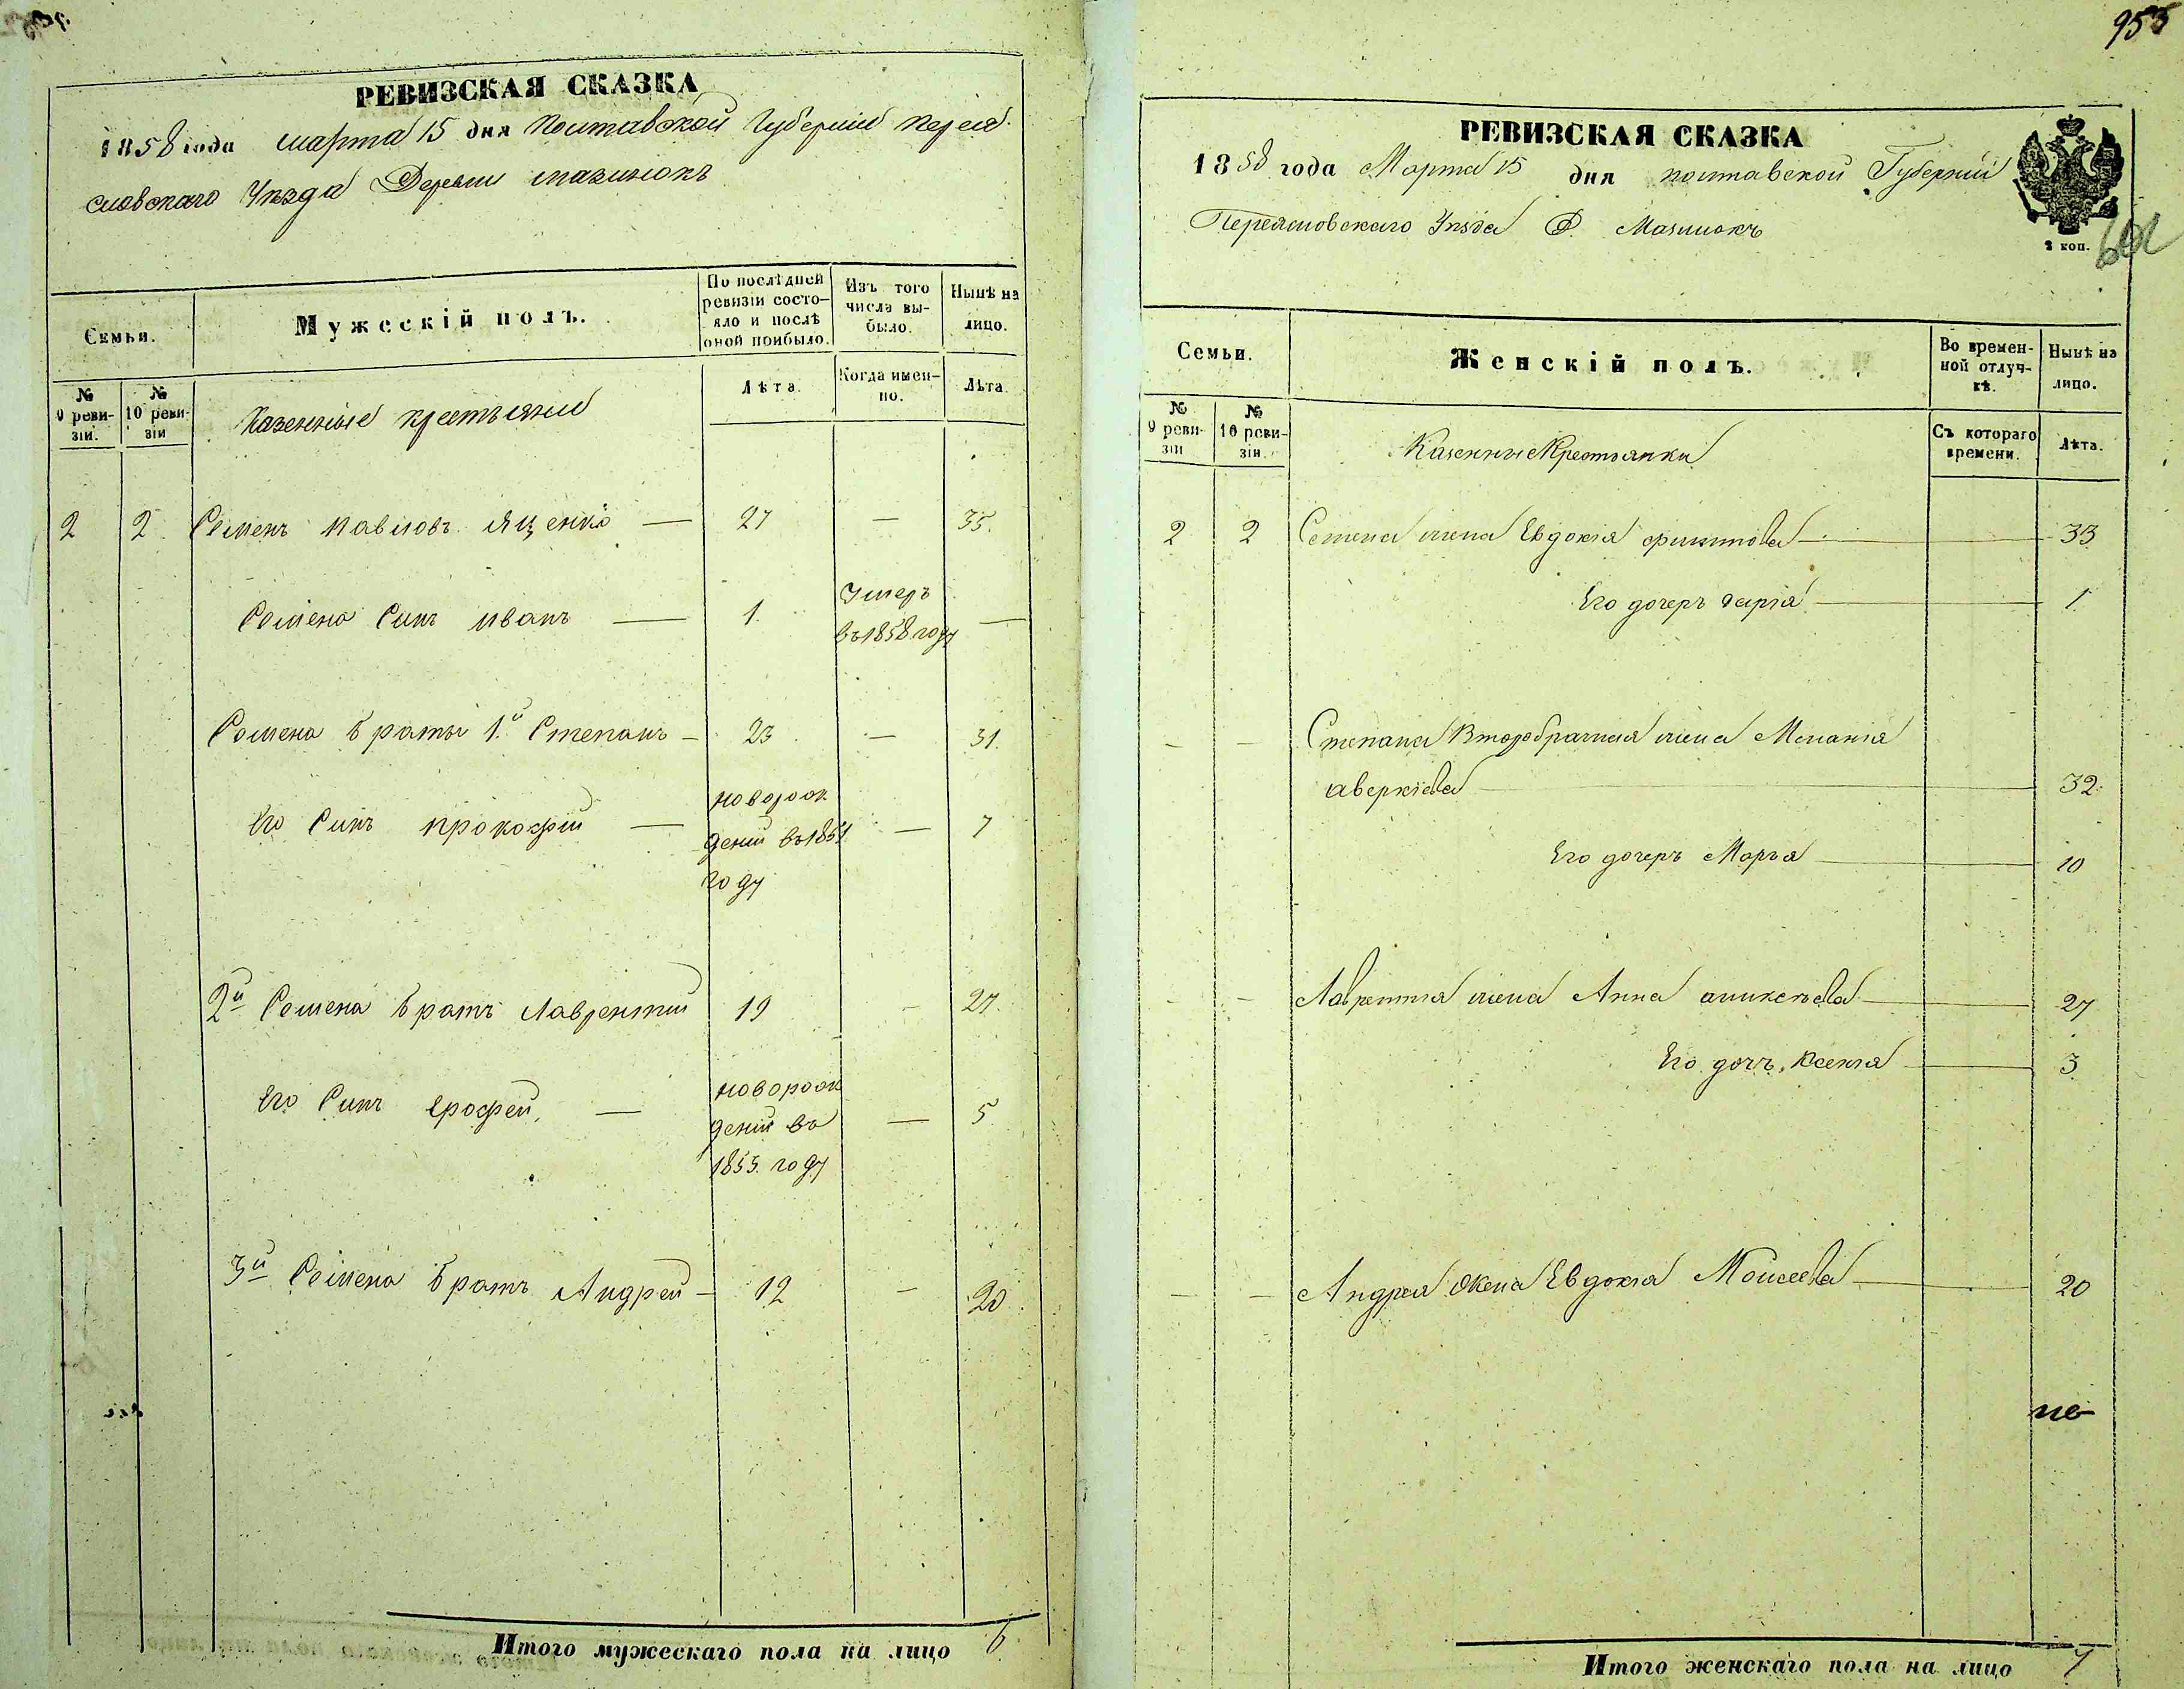 РЕВИЗСКАЯ СКАЗКА
1858 года марта 15 дня Полтавской Губернии Перея-
славскаго Уезда Деревни Мазинокъ
Семьи.
Мужескій полъ.
По послѣдней ревизіи состо-яло и послѣ оной прибыло.
Изъ того числа вы-было.
Нынѣ на лицо.
№ 9 реви-зіи.
№ 10 реви-зіи
Казенные крестьяне
Лѣта.
Когда имен-но.
Лѣта.
2 2 Семенъ Павловъ Яценко — 27 — 35.
Семена Синъ Иванъ — 1. Умеръ въ 1858 году —
Семена браты 1й Степанъ — 23 — 31.
Его Синъ Прокофій — новорож
дений въ 1851 — 7
году
2й Семена братъ Лаврентій 19 — 27.
Его Синъ Ерофей, — новорож
дений въ — 5
1853. году
3й Семена братъ Андрей — 12 — 20
Итого мужескаго пола на лицо 6
953
РЕВИЗСКАЯ СКАЗКА
1858 года Марта 15 дня Полтавской Губернии
Переясловскаго Уезда Д. Мазинокъ
2 коп.
Семьи.
Женскій полъ.
Во времен-ной отлуч-кѣ.
Нынѣ на лицо.
№ 9 реви-зіи
№ 10 реви-зіи.
Казенны Крестьянки
Съ котораго времени.
Лѣта.
2 2 Семена жена Евдокія Филипова — 33
Его дочеръ дарія — 1.
— — Степана Второбрачная жена Меланія
аверкіева — 32.
Его дочеръ Марья — 10
— — Лаврентія жена Анна аникѣева — 27
Его дочъ, Ксенія — 3
— — Андрея Жена Евдокія Моисеева — 20
Итого женскаго пола на лицо 7